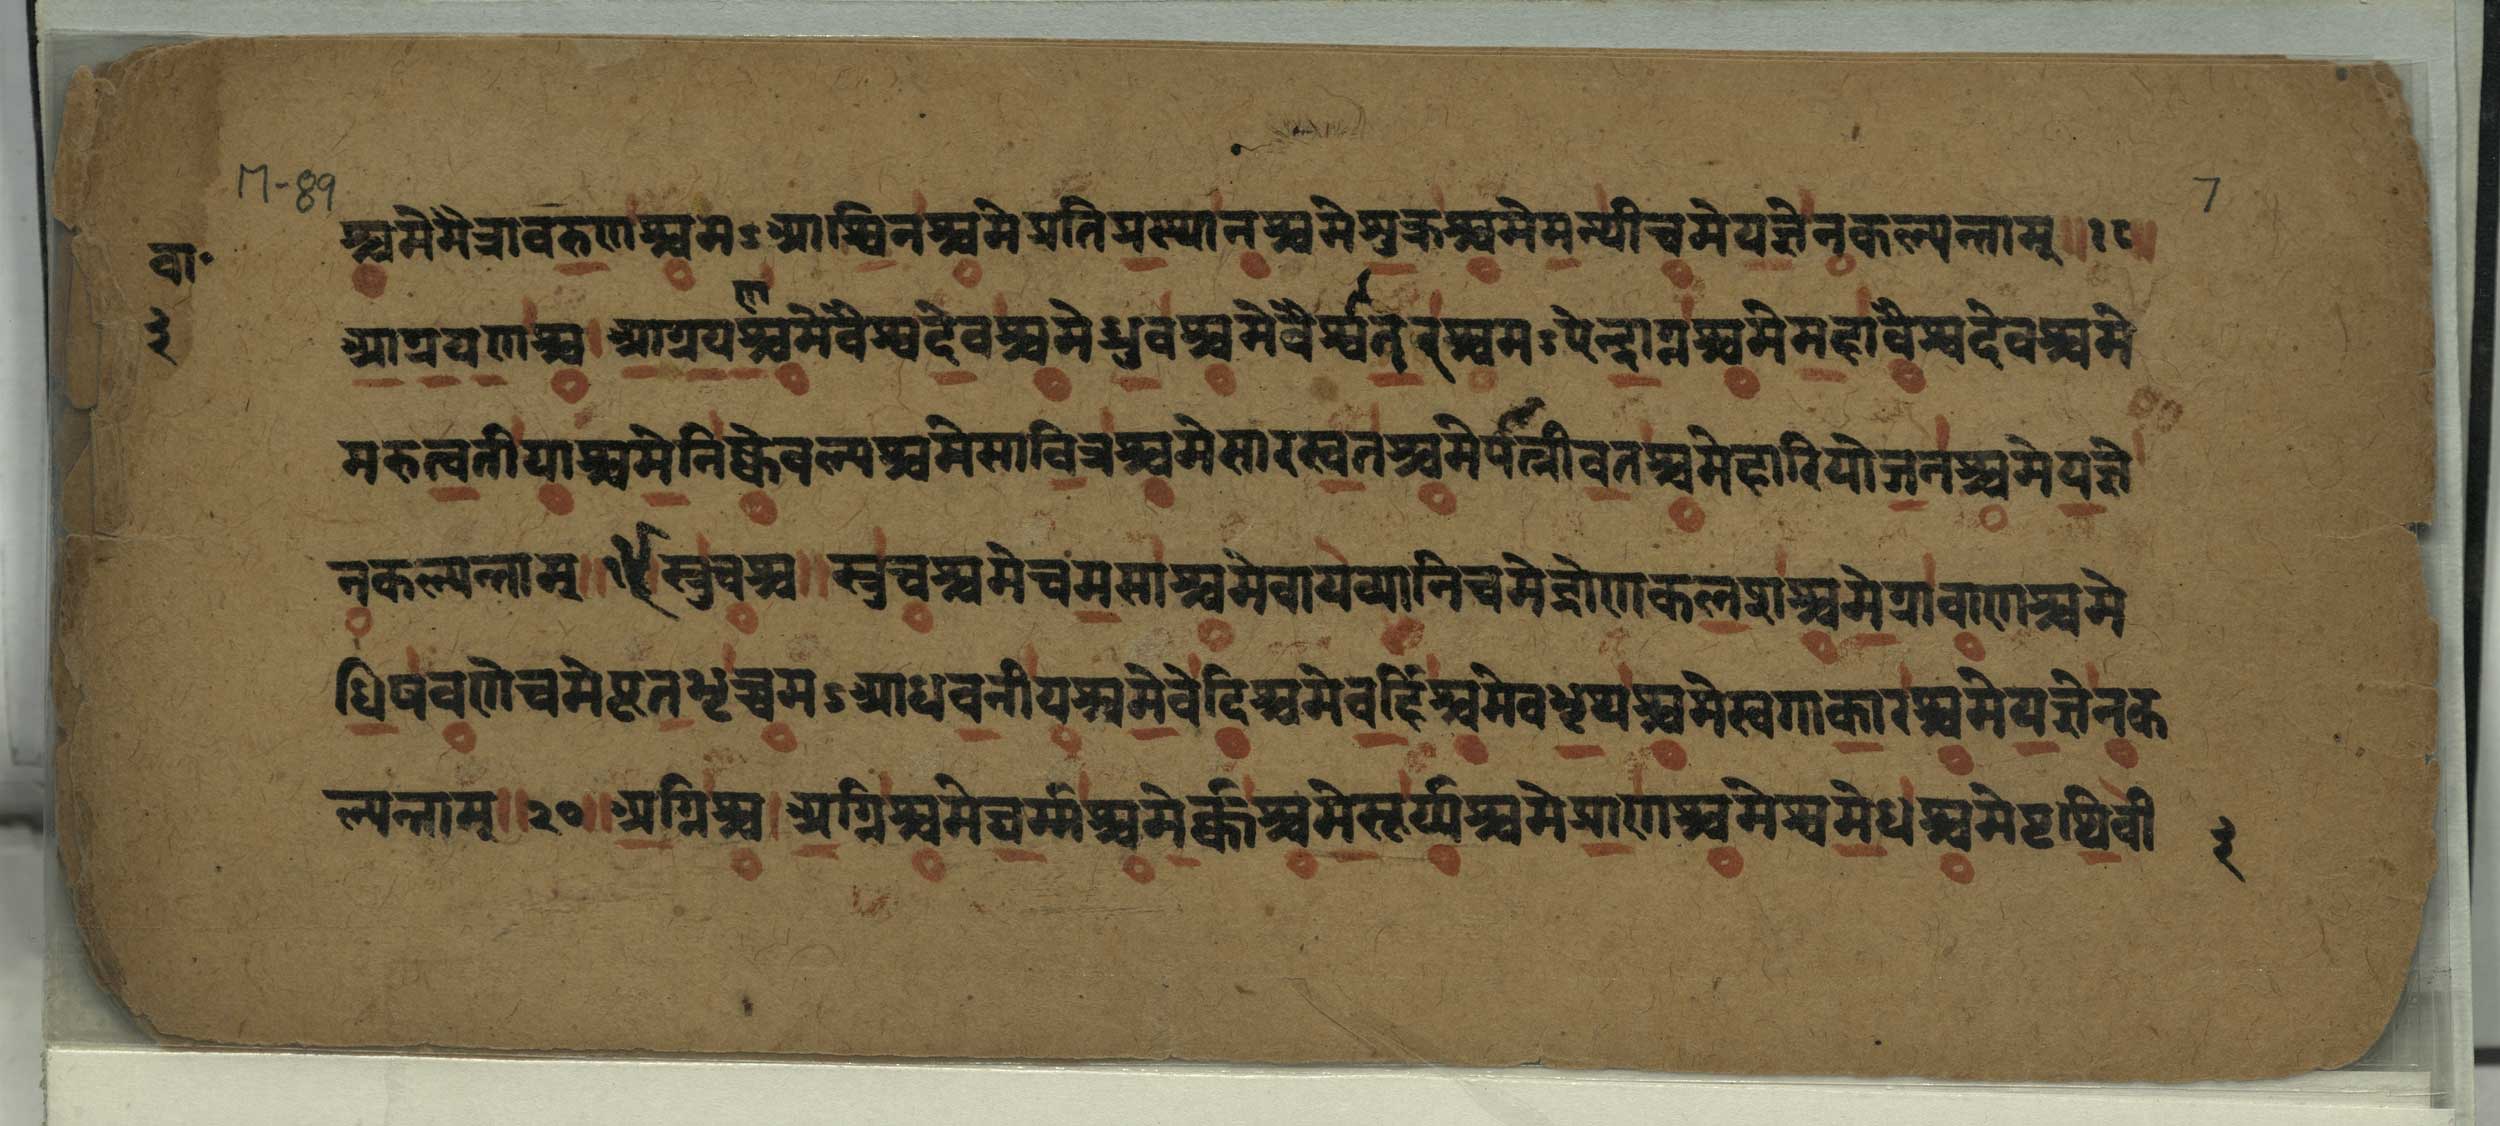 M-89
7
वा॰
३
श्चमेमैत्रावरुणश्चमऽआश्विनश्चमेप्रतिप्रस्थानश्चमेशुक्रश्चमेमन्थीचमेयज्ञेनकल्पन्ताम्॥१८॥
आग्रयणश्च।आग्रयणश्चमेवैश्वदेवश्चमेध्रुवश्चमेवैश्वानरश्चमऽऐन्द्राग्नश्चमेमहावैश्वदेवश्चमे
मरुत्वतीयाश्चमेनिष्केवल्यश्चमेसावित्रश्चमेसारस्वतश्चमेपात्नीवतश्चमेहारियोजनश्चमेयज्ञे
नकल्पन्ताम्॥स्रुचश्च॥स्रुचश्चमेचमसाश्चमेवायव्यानिचमेद्रोणकलशश्चमेग्रावाणश्चमे
धिषवणेचमेपूतभृच्चमऽआधवनीयश्चमेवेदिश्चमेबर्हिश्चमेवभृथश्चमेस्वगाकारश्चमेयज्ञेनक
ल्पन्ताम्॥२०॥अग्निश्च।अग्निश्चमेघर्म्मश्चमेर्क्कश्चमेसूर्य्यश्चमेप्राणश्चमेश्वमेधश्चमेपृथिवी
३